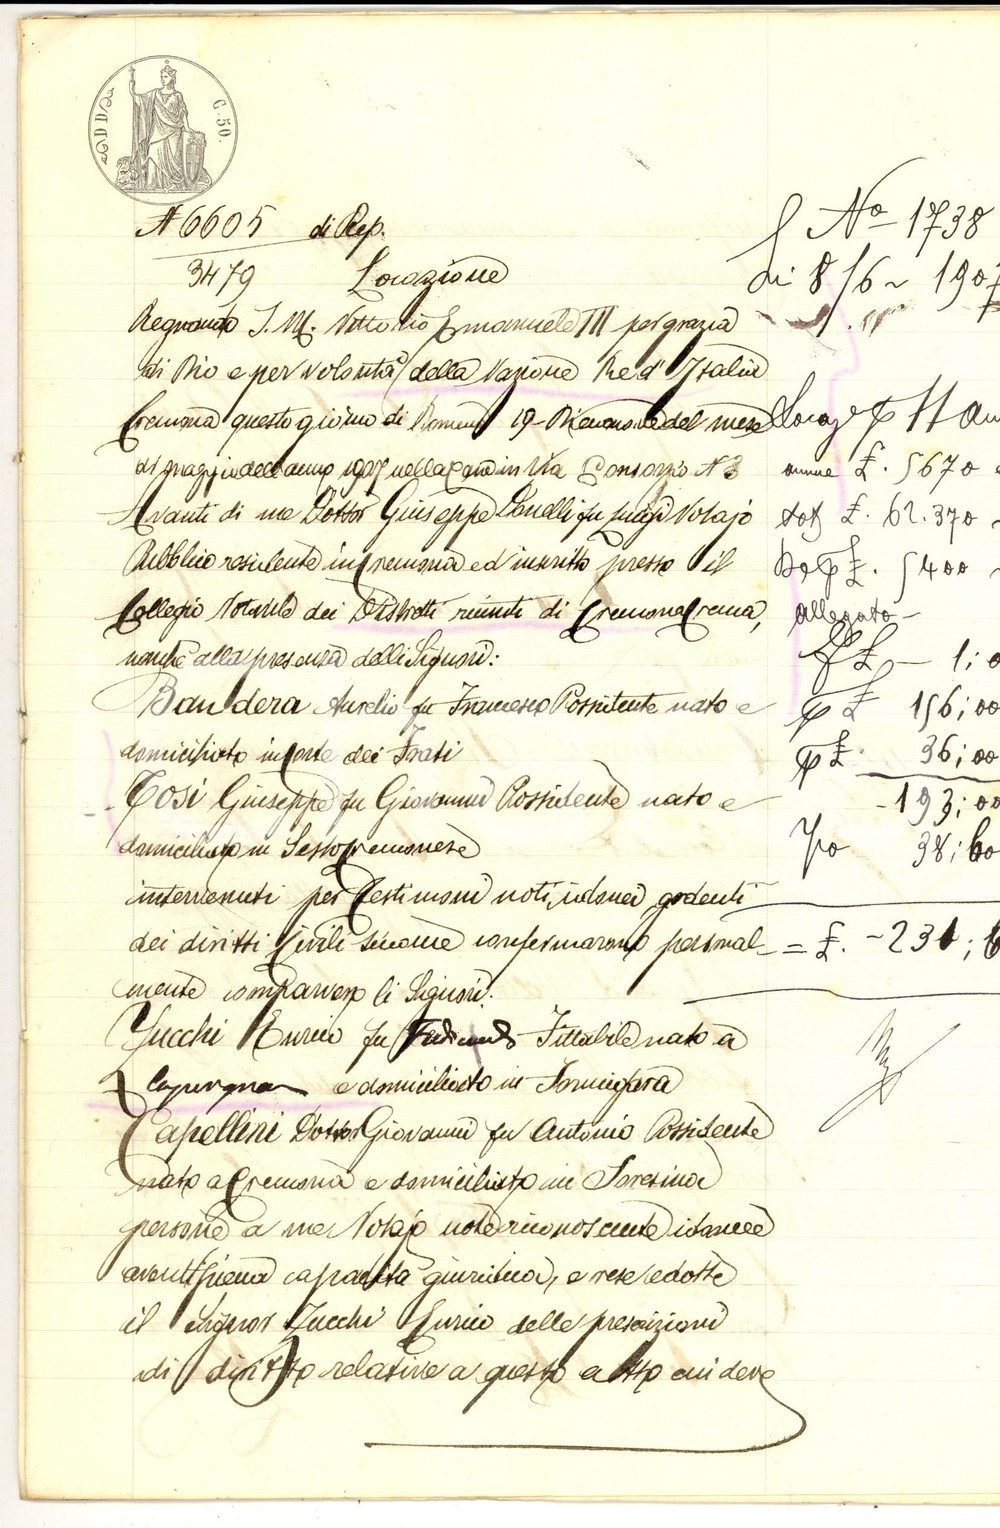 C. 50.
N 6605 di Rep.
3479 Locazione
Regnando S. M. Vittorio Emanuele III per grazia
di Dio e per volontà della Nazione Re d'Italia
Cremona questo giorno di Domenica 19 - Diecinove del mese
di Maggio dell'anno 1907 nella casa in Via Consorzio N 3
Avanti di me Dottor Giuseppe fu Luigi Notajo
Pubblico residente in Cremona ed inscritto presso il
Collegio Notarile dei Distretti riuniti di Cremona Crema,
nonchè alla presenza delli Signori:
Bandera Aurelio fu Francesco Possidente nato e
domiciliato in Corte dei Frati
Tosi Giuseppe fu Giovanni Possidente nato e
domiciliato in Sesto Cremonese
intervenuti per Testimoni noti, idonei godenti
dei diritti Civili siccome confermarono personal-
mente comparvero li Signori:
Zucchi Enrico fu Ferdinando Fittabile nato a
Capergnanica e domiciliato in Formigara
Capellini Dottor Giovanni fu Antonio Possidente
nato a Cremona e domiciliato in Soresina
persone a me Notajo note riconosciute idonee
aventi piena capacità giuridica, e rese edotte
il Signor Zucchi Enrico delle prescrizioni
di diritto relative a questo atto cui deve
No 1738
di 8/6 - 1907
Locaz p 11 an
annue £. 5670
tot £. 62.370
Dep £. 5400
allegato -
£ - 1; 0
£ 156; 00
£. 36; 00
193; 00
38; 60
= £. - 231; 6